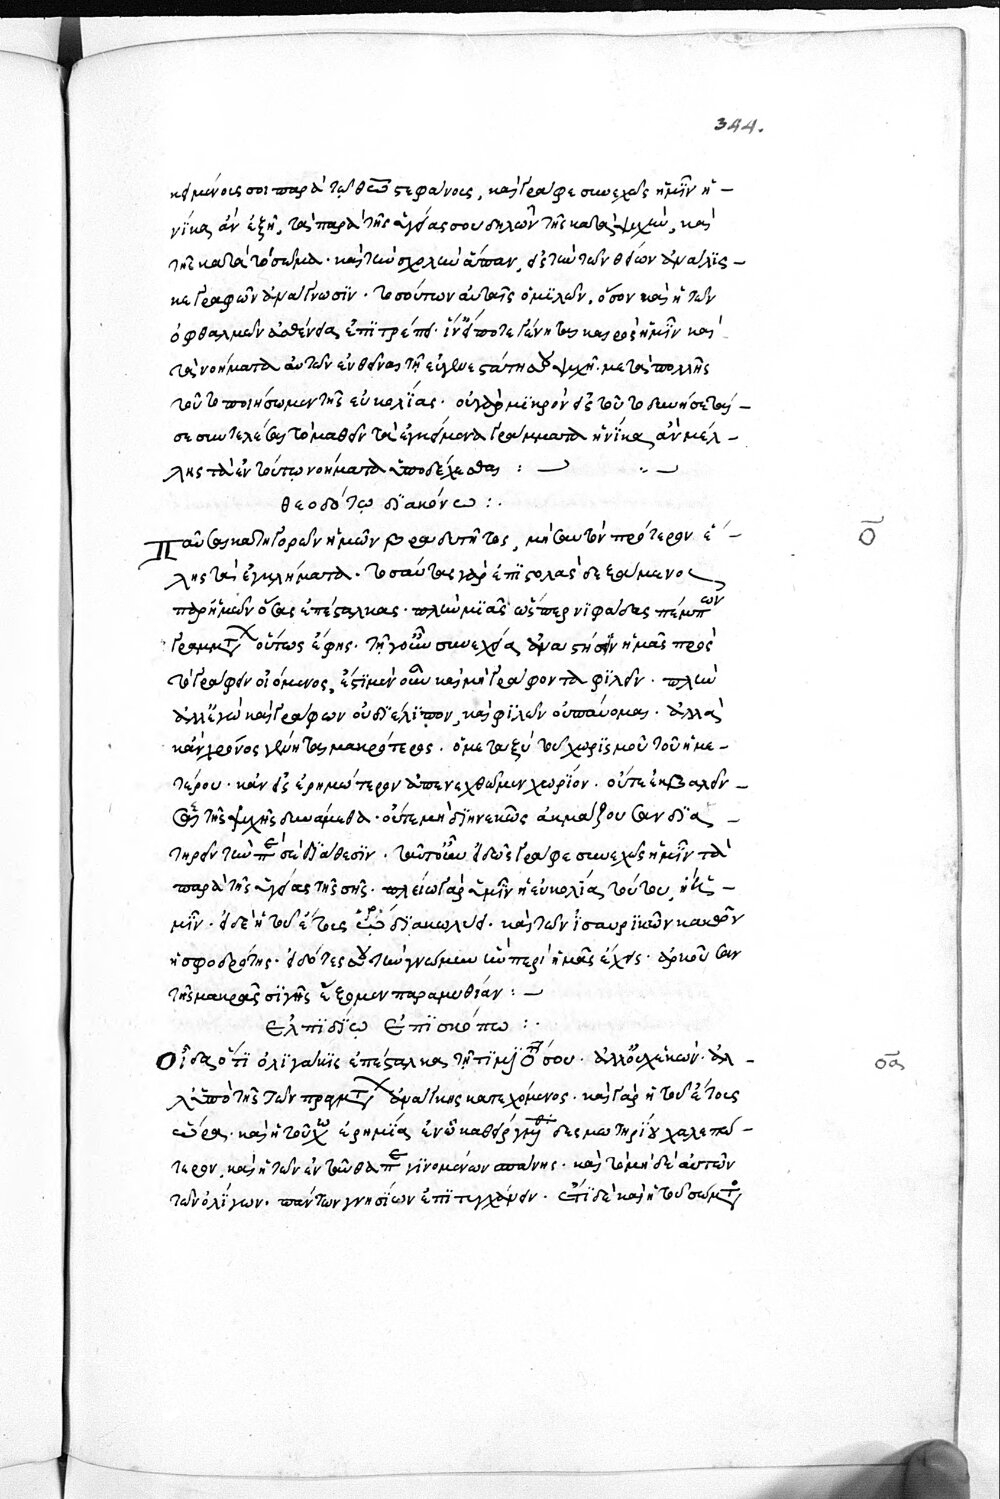 344.
κειμένοις σοι παρὰ τῷ θεῷ στεφάνοις, καὶ γράφε συνεχῶς ἡμῖν ἡ-
νίκα ἂν ἐξῇ, τὰ παρὰ τῆς ὑγείας σου δηλῶν τῆς κατὰ ψυχὴν, καὶ
τῆς κατὰ τὸ σῶμα. καὶ τὴν σχολὴν ἅπασαν, εἰς τὴν τῶν θείων ἀνάλισ-
κε γραφῶν ἀνάγνωσιν. τοσοῦτον αὐταῖς ὁμιλῶν, ὅσον καὶ ἡ τῶν
ὀφθαλμῶν ἀσθένεια ἐπιτρέπει. ἵν' εἴποτε γένηται καιρὸς ἡμῖν καὶ
τὰ νοήματα αὐτῶν ἐνθεῖναι τῇ εὐγενεστάτῃ σου ψυχῇ. μετὰ πολλῆς
τοῦτο ποιήσωμεν τῆς εὐκολίας. οὐ γὰρ μικρὸν εἰς τοῦτο δυνήσεταί
σε συντελέσαι τὸ μαθεῖν τὰ ἐγκείμενα γράμματα ἡνίκα ἂν μέλ-
λῃς τὰ ἐν τούτῳ νοήματα ὑποδέχεσθαι :
θεοδότῳ διακόνω :.
Παῦσαι κατηγορῶν ἡμῶν βραδυτῆτος, μὴ σαυτὸν πρότερον ἕ-
λῃς τὰ ἐγκλήματα. τοσαύτας γὰρ ἐπιστολὰς δεξάμενος
παρ' ἡμῶν ὅσας ἐπέσταλκας. πλὴν μίας ὥσπερ νιφάδας πέμπων
γραμμάτων οὕτως ἔφης. τῇ γοῦν συνεχείᾳ ἀναστήσειν ἡμᾶς πρὸς
τὸ γράφειν οἰόμενος, ἔστι μὲν οὖν καὶ μὴ γράφοντα φιλεῖν. πλὴν
ἀλλ' ἐγὼ καὶ γράφων οὐ διέλιπον, καὶ φιλῶν οὐ παύομαι. ἀλλὰ
κἂν χρόνος γένηται μακρότερος. ὁ μεταξὺ τοῦ χωρισμοῦ τοῦ ἡμε-
τέρου. κἂν εἰς ἐρημότερον ἀπενεχθῶμεν χωρίον. οὔτε ἐκβαλεῖν
σε τῆς ψυχῆς δυνάμεθα. οὔτε μὴ διηνεκῶς ἀκμάζουσαν δια-
τηρεῖν τὴν περὶ σὲ διάθεσιν. ταῦτ' οὖν εἰδὼς γράφε συνεχῶς ἡμῖν τὰ
παρὰ τῆς ὑγείας τῆς σῆς. πλείω γὰρ ὑμῖν ἡ εὐκολία τούτου, ἢ ἡ-
μῖν. εἰ δὲ ἡ τοῦ ἔτους ὥρα διακωλύει. καὶ τῶν ἰσαυρικῶν κακῶν
ἡ σφοδρότης. εἰδότες σου τὴν γνώμην ἣν περὶ ἡμᾶς ἔχεις. ἀρκοῦσαν
τῆς μακρᾶς σιγῆς ἕξομεν παραμυθίαν :
Ελπιδίῳ επισκόπω :.
Οἶδα ὅτι ὀλιγάκις ἐπέσταλκα τῇ τιμιότητί σου. ἀλλ' οὐχ ἑκών. ἀλ-
λ' ὑπὸ τῆς τῶν πραγμάτων ἀνάγκης κατεχόμενος. καὶ γὰρ ἡ τοῦ ἔτους
ὥρα. καὶ ἡ τοῦ χωρίου ἐρημία ἐν ᾧ καθείργμεθα δεσμωτηρίου χαλεπώ-
τερον, καὶ ἡ τῶν ἐνταῦθα παραγινομένων σπάνις. καὶ τὸ μηδὲ αὐτῶν
τῶν ὀλίγων. πάντων γνησίων ἐπιτυγχάνειν. ἔτι δὲ καὶ ἡ τοῦ σώματος
ο
οα